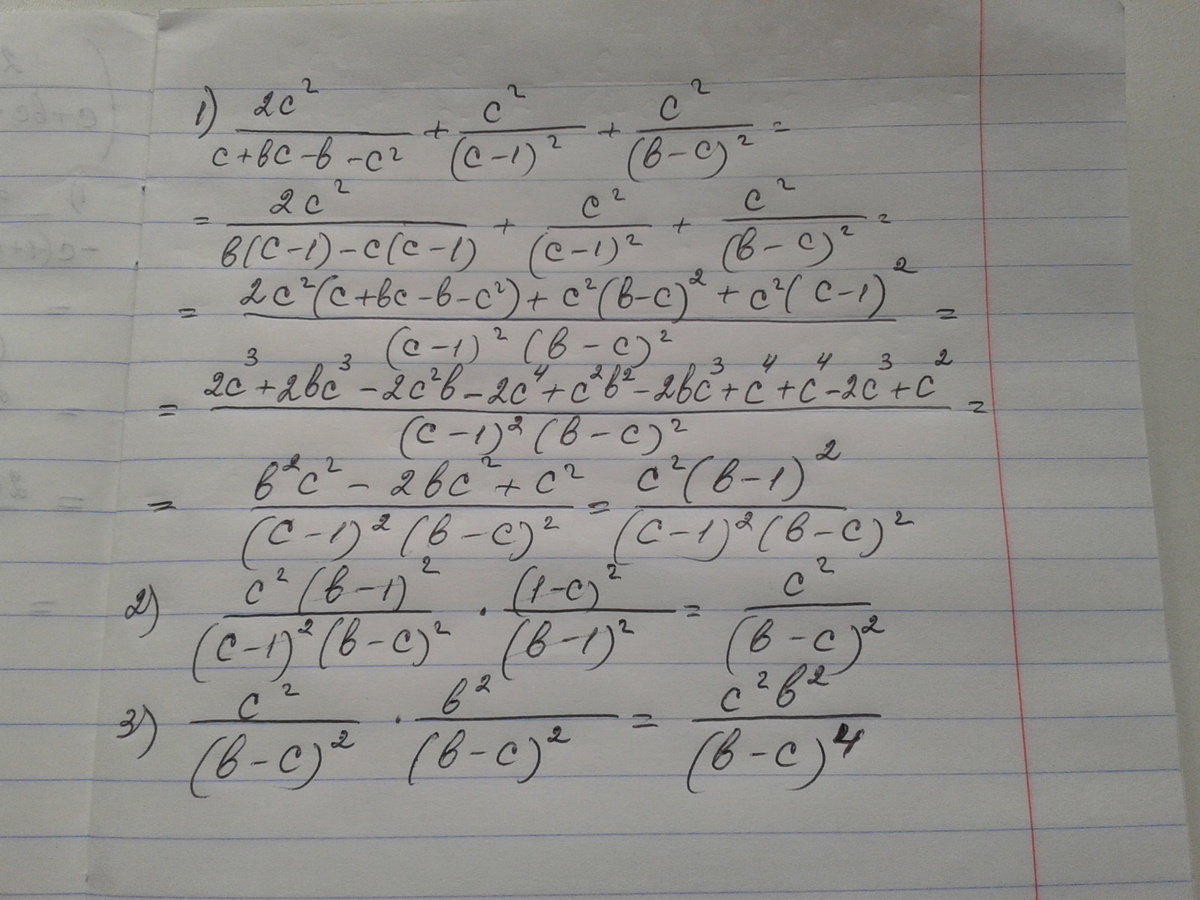 1) 2c²/(c+bc-b-c²) + c²/(c-1)² + c²/(b-c)² =
= 2c²/(b(c-1)-c(c-1)) + c²/(c-1)² + c²/(b-c)² =
= (2c²(c+bc-b-c²)+c²(b-c)²+c²(c-1)²)/((c-1)²(b-c)²) =
= (2c³+2bc³-2c²b-2c⁴+c²b²-2bc³+c⁴+c⁴-2c³+c²)/((c-1)²(b-c)²) =
= (b²c²-2bc²+c²)/((c-1)²(b-c)²) = c²(b-1)²/((c-1)²(b-c)²)
2) c²(b-1)²/((c-1)²(b-c)²) · (1-c)²/(b-1)² = c²/(b-c)²
3) c²/(b-c)² · b²/(b-c)² = c²b²/(b-c)⁴